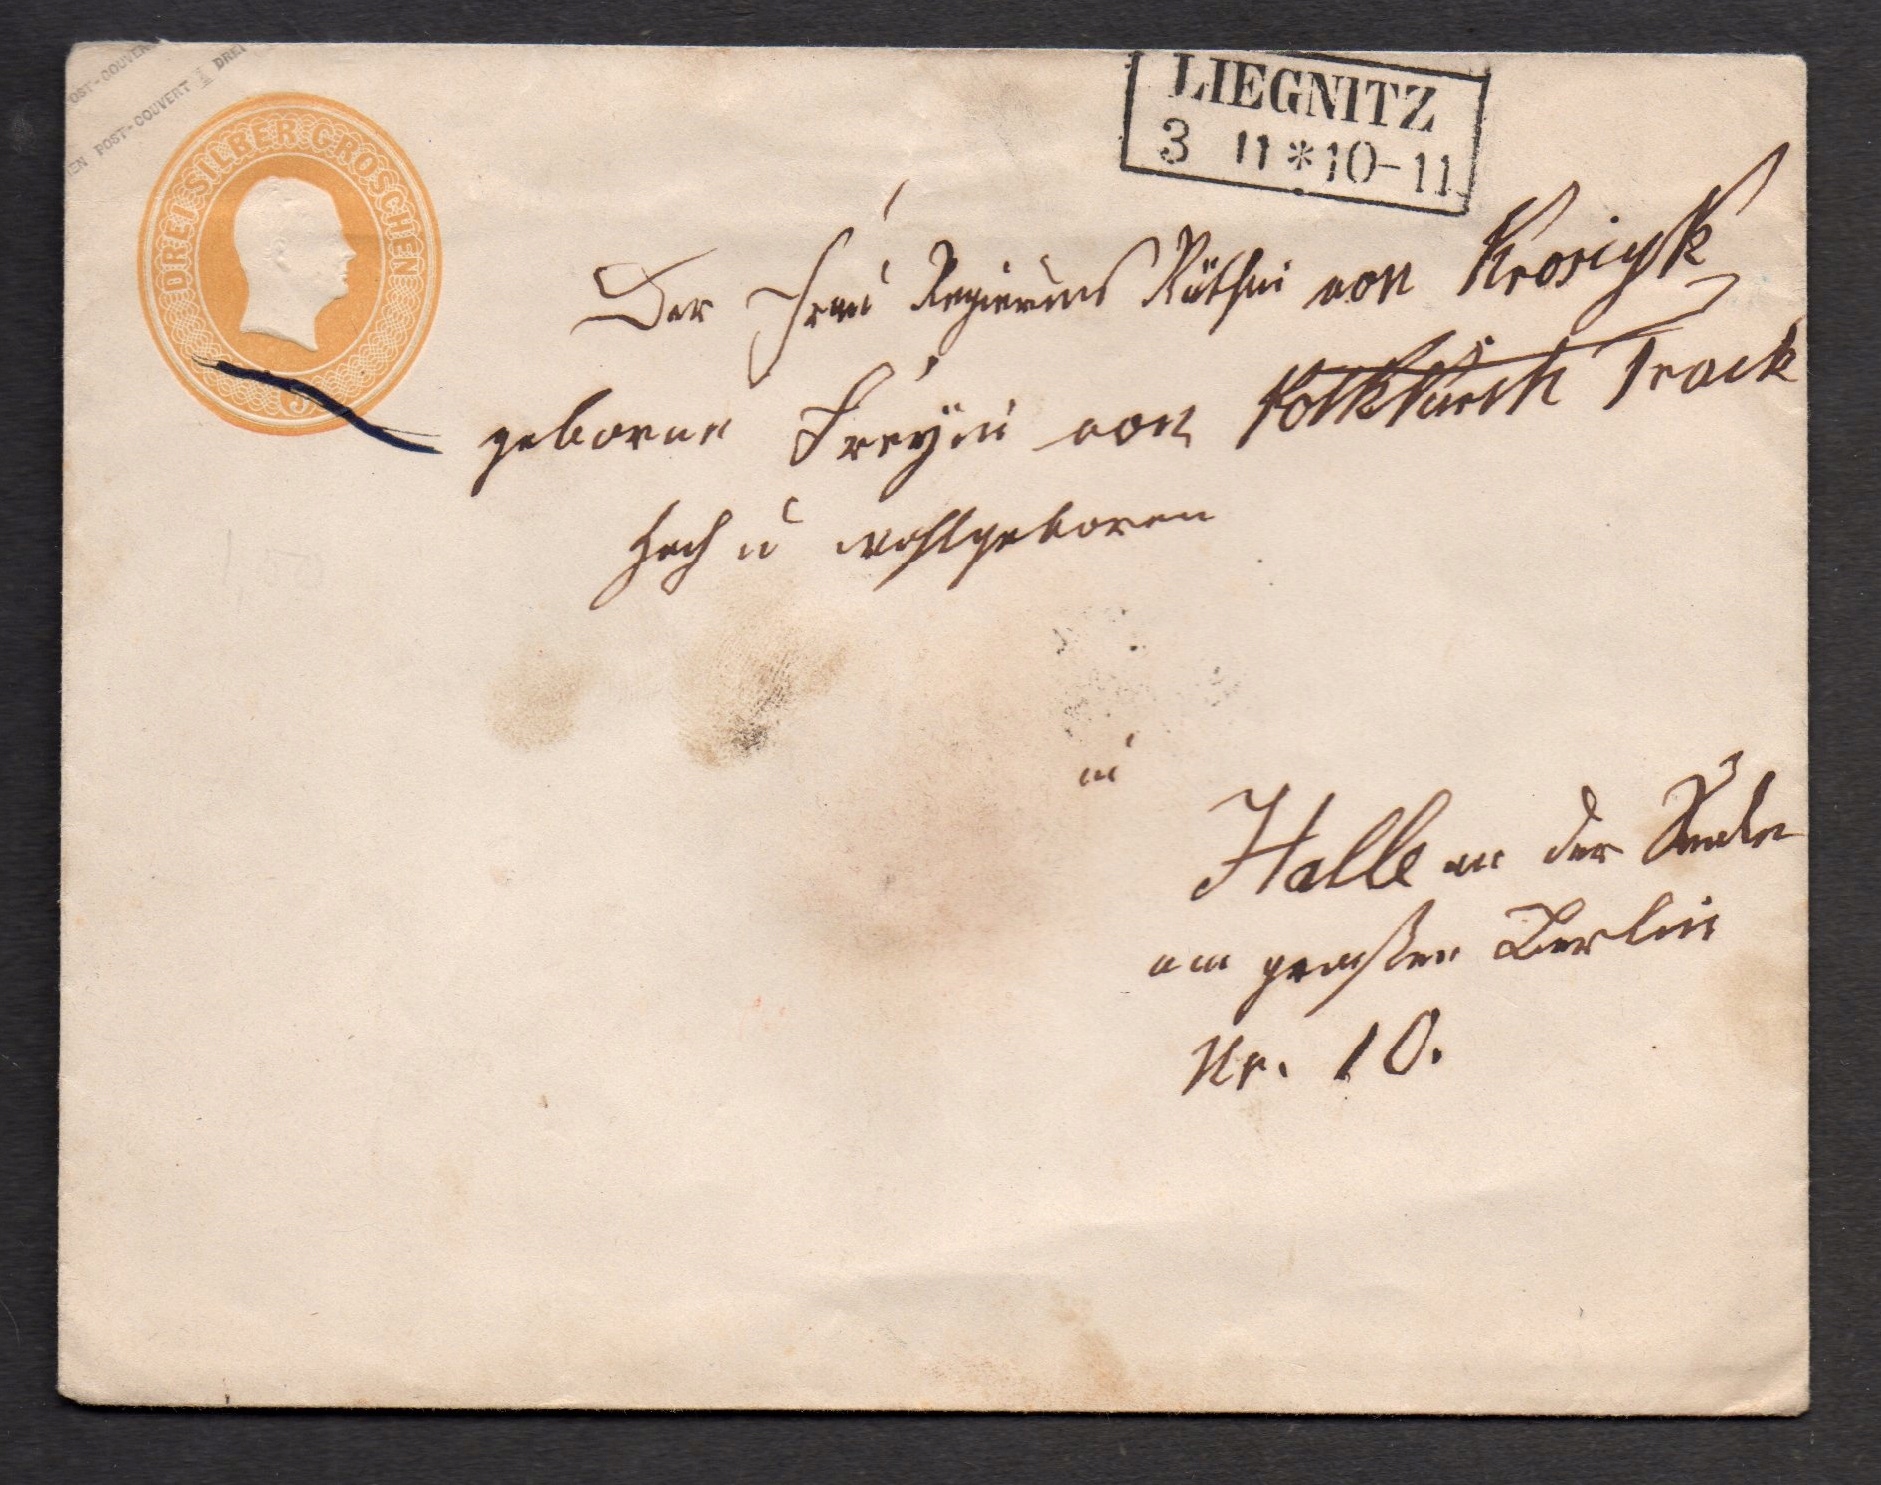 OST-COUVER
EN POST-COUVERT DREI
DREI SILBER GROSCHEN
3
LIEGNITZ
3 11 * 10-11
Der Frau Regierungs Räthin von Krosigk
geborne Freyin von Trach
Hoch u wohlgeboren
in
Halle an der Saale
am großen Berlin
Nr. 10.